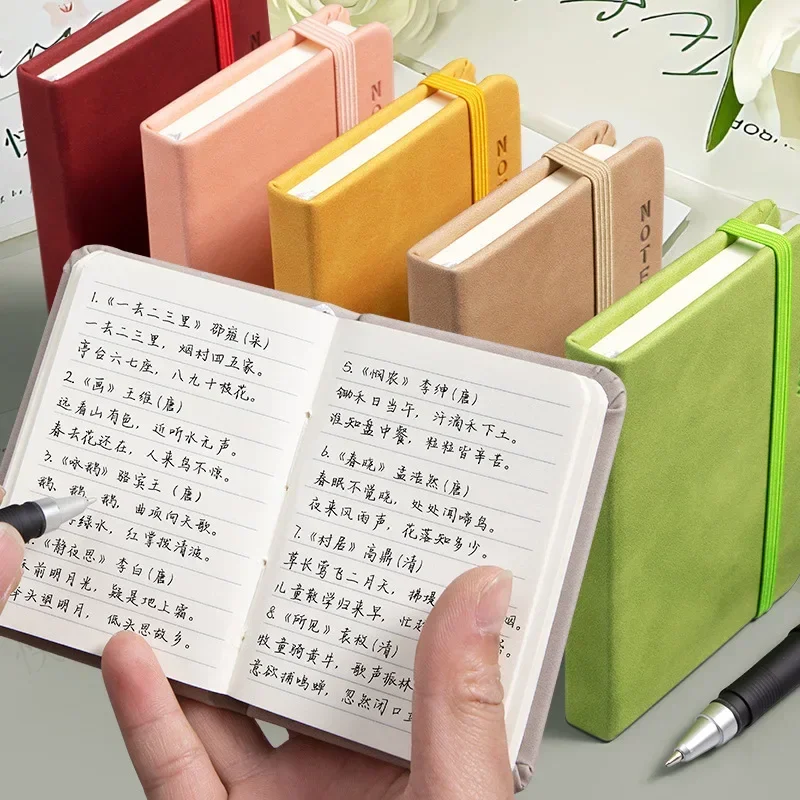 NO
NO
NOTE
1.《一去二三里》邵雍(宋)
一去二三里，烟村四五家。
亭台六七座，八九十枝花。
2.《画》王维(唐)
远看山有色，近听水无声。
春去花还在，人来鸟不惊。
3.《咏鹅》骆宾王（唐）
鹅，鹅，鹅，曲项向天歌。
绿水，红掌拨清波。
《静夜思》李白(唐)
前明月光，疑是地上霜。
举头望明月，低头思故乡。
5.《悯农》李绅(唐)
锄禾日当午，汗滴禾下土。
谁知盘中餐，粒粒皆辛苦。
6.《春晓》孟浩然(唐)
春眠不觉晓，处处闻啼鸟。
夜来风雨声，花落知多少。
7.《村居》高鼎(清)
草长莺飞二月天，拂堤 烟。
儿童散学归来早，忙趁
8.《所见》袁枚(清)
牧童骑黄牛，歌声振林
意欲捕鸣蝉，忽然闭口立